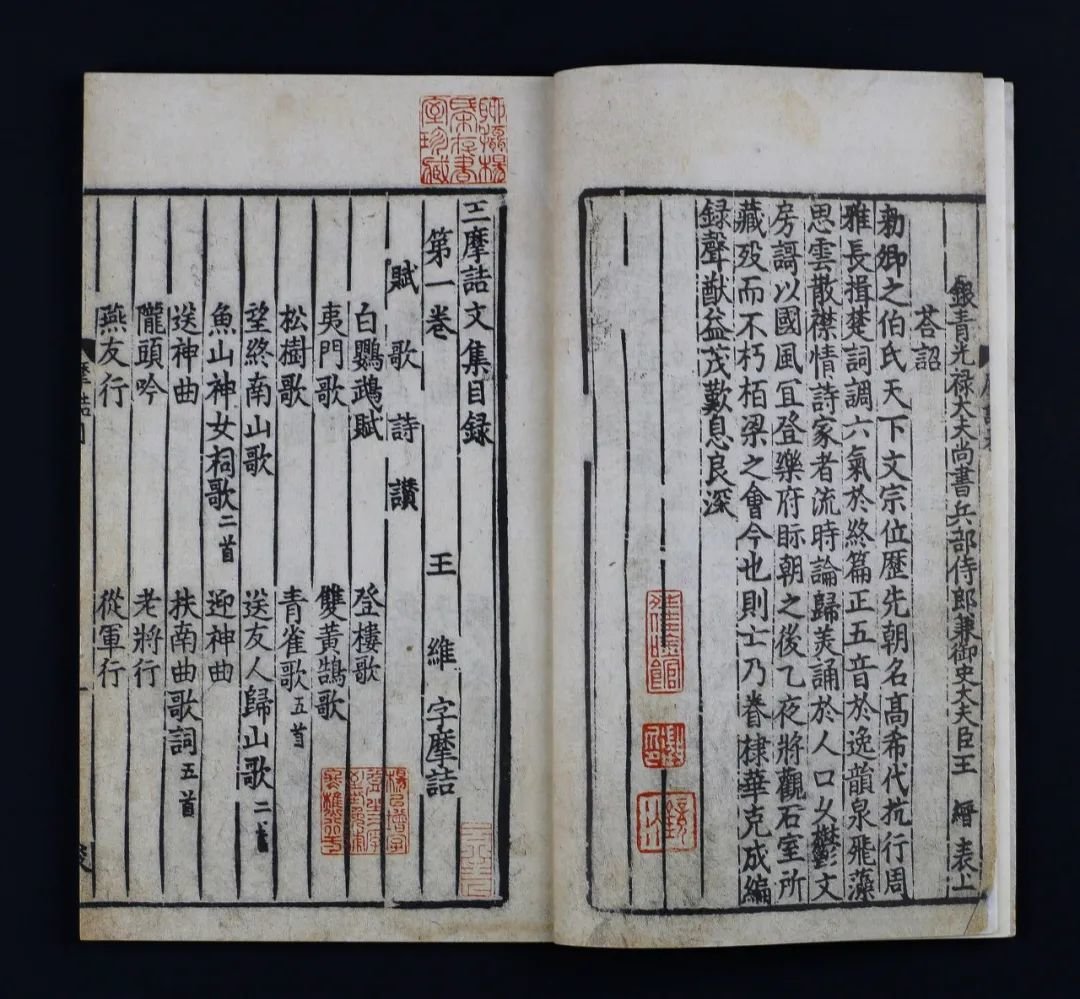 銀青光禄大夫尚書兵部侍郎兼御史大夫臣王 縉 表上
荅詔
勑卿之伯氏天下文宗位歷先朝名髙希代抗行周
雅長揖楚詞調六氣於終篇正五音於逸韻泉飛藻
思雲散襟情詩家者流時論歸羙誦於人口久欝文
房謌以國風冝登樂府眎朝之後乙夜將觀石室所
藏殁而不朽栢梁之會今也則士乃眷棣華克成編
録聲猷益茂歎息良深
王摩詰文集目録
第一巻 王 維 字摩詰
賦 歌 詩 讃
白鸚鵡賦 登樓歌
夷門歌 雙黃鵠歌
松樹歌 青雀歌五首
望終南山歌 送友人歸山歌二首
魚山神女祠歌二首 迎神曲
送神曲 扶南曲歌詞五首
隴頭吟 老將行
燕友行 從軍行